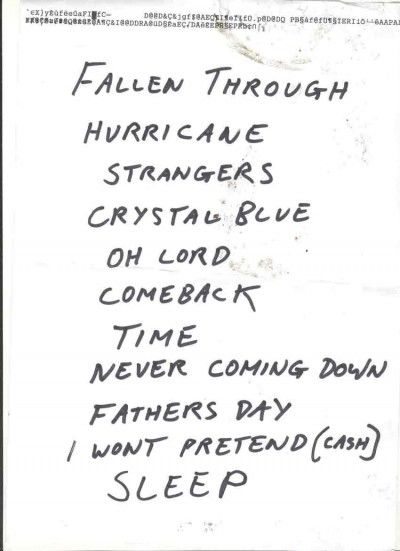 FALLEN THROUGH
HURRICANE
STRANGERS
CRYSTAL BLUE
OH LORD
COMEBACK
TIME
NEVER COMING DOWN
FATHERS DAY
I WONT PRETEND (CASH)
SLEEP